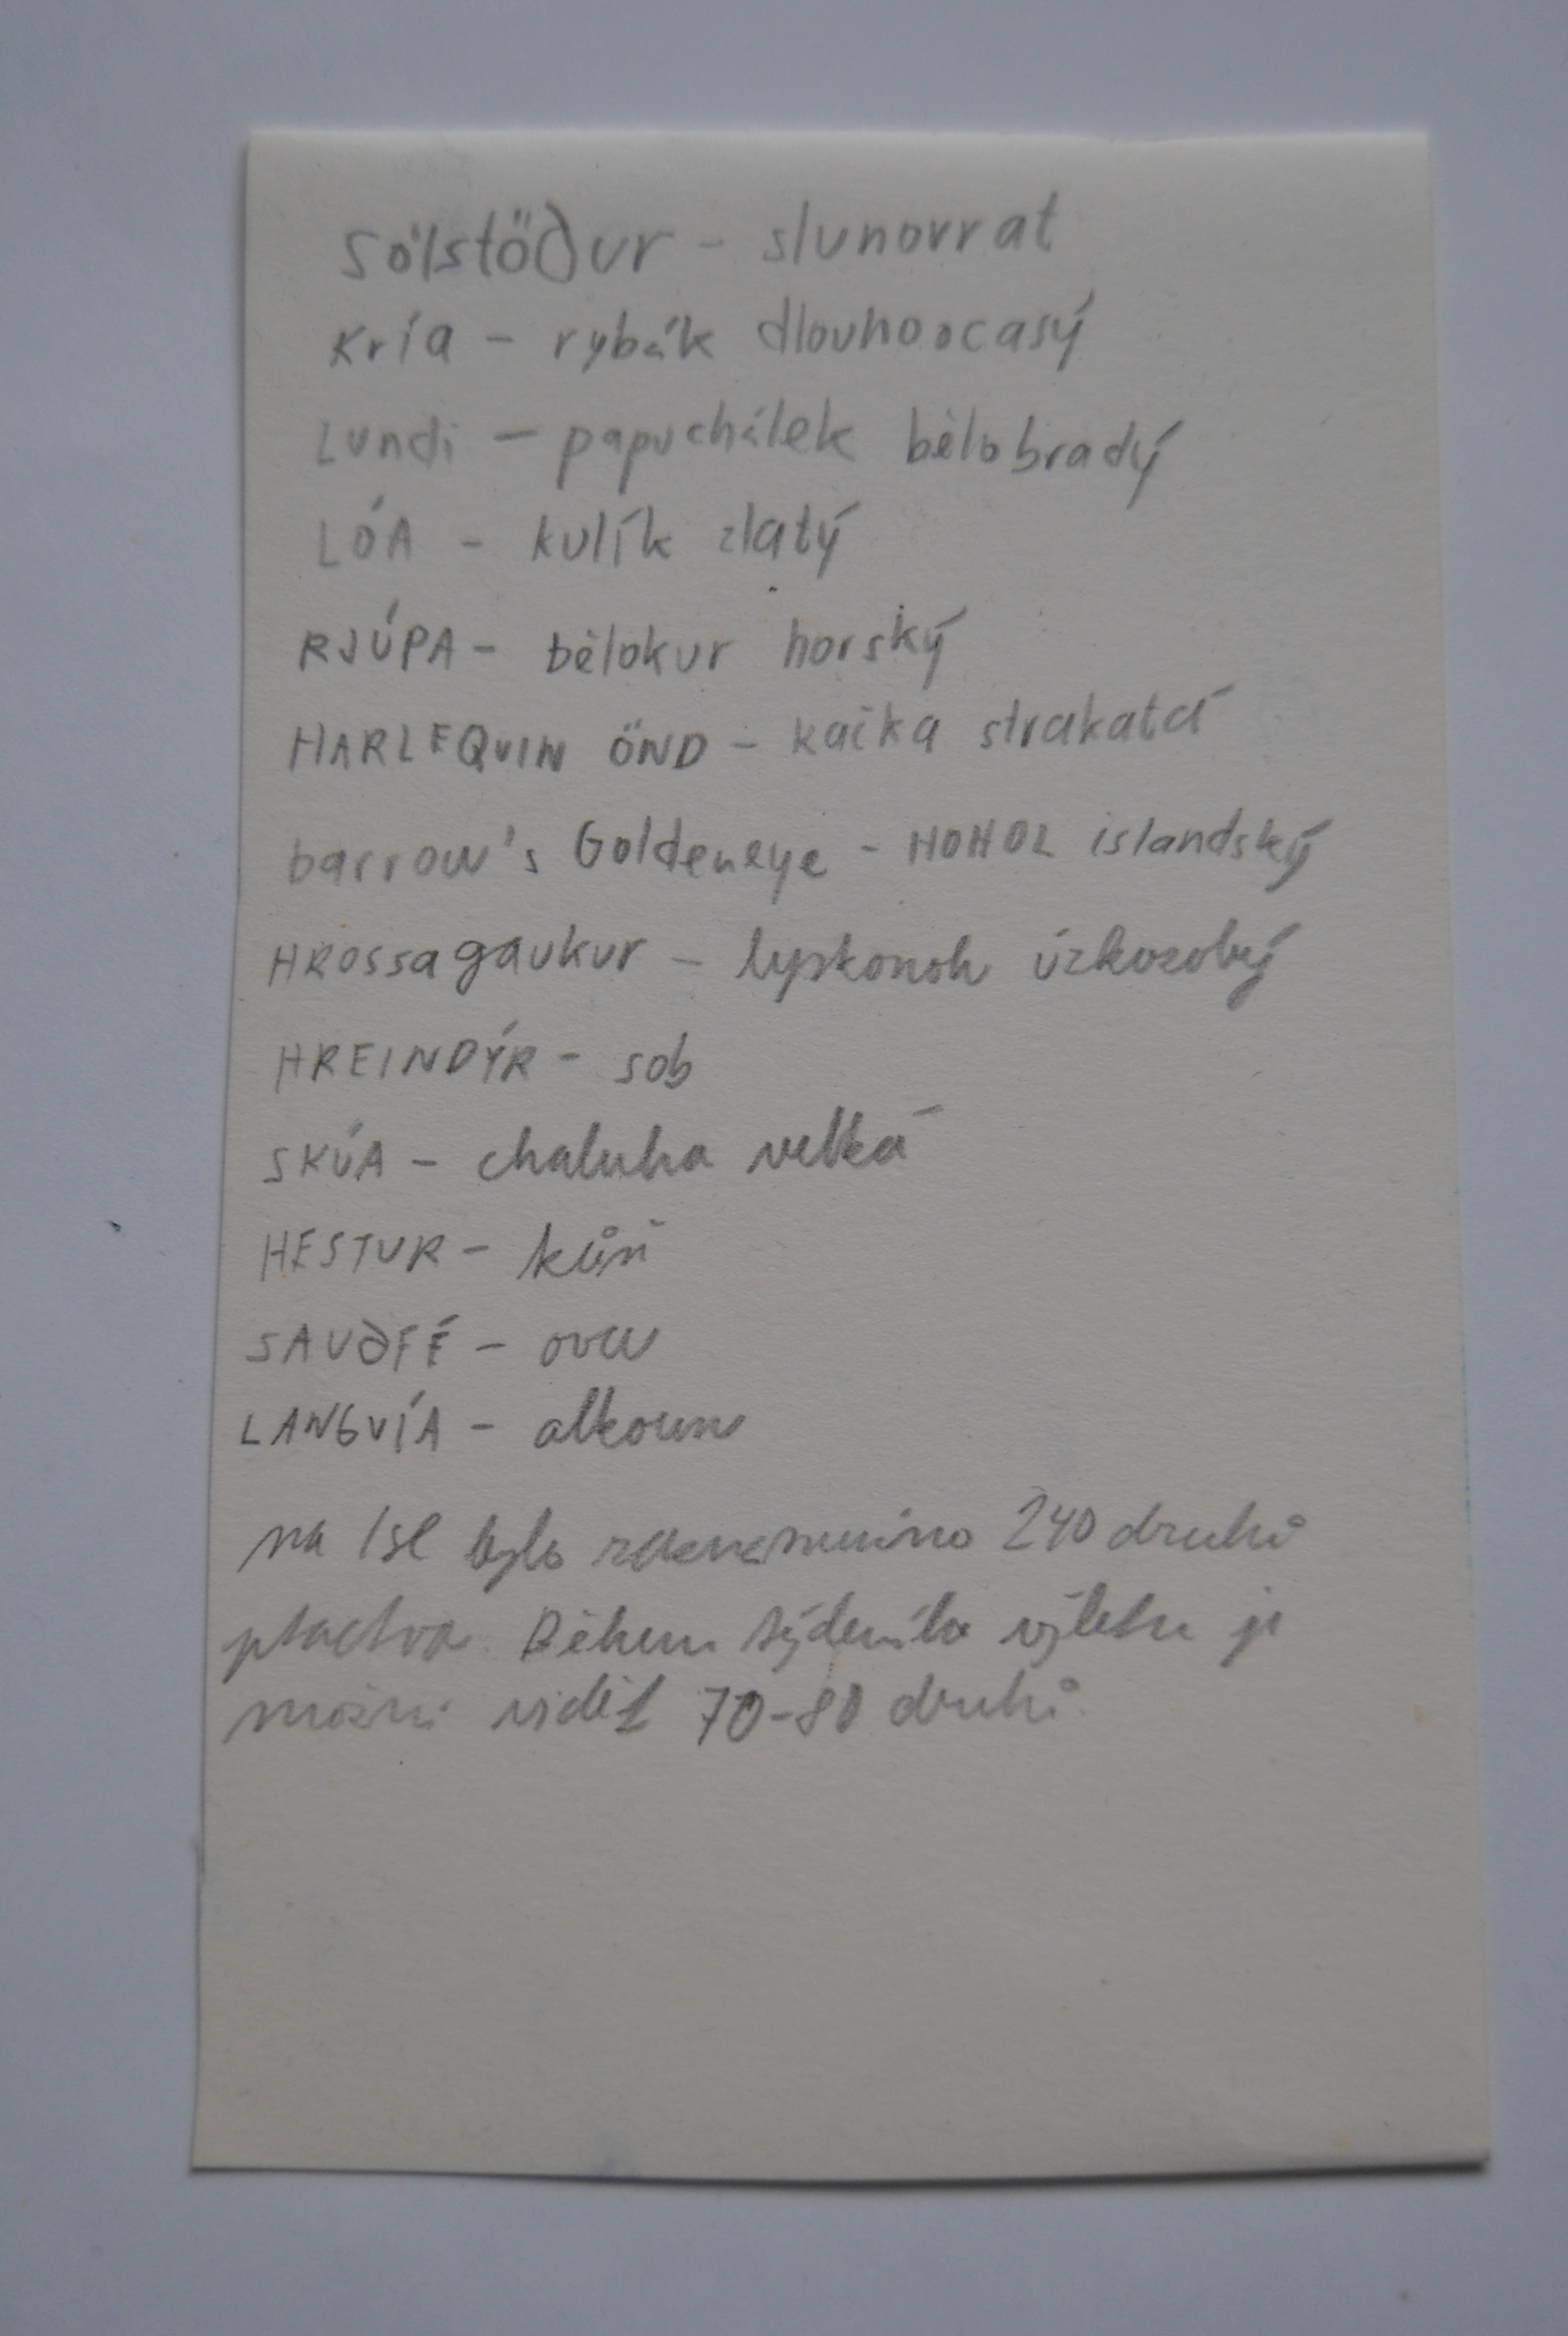 Sólstöður - slunovrat
Kría - rybák dlouhoocasý
Lundi - papuchálek bělobradý
LÓA - kulík zlatý
RJÚPA - bělokur horský
HARLEQUIN ÖND - kačka strakatá
barrow's Goldeneye - HOHOL islandský
HROSSAgaukur - lyskonoh úzkozobý
HREINDÝR - sob
SKÚA - chaluha velká
HESTUR - kůň
SAUÐFÉ - ovce
LANGVÍA - alkoun
na Isl bylo zaznamenáno 240 druhů
ptactva. Během týdenního výletu je
možné vidět 70-80 druhů.